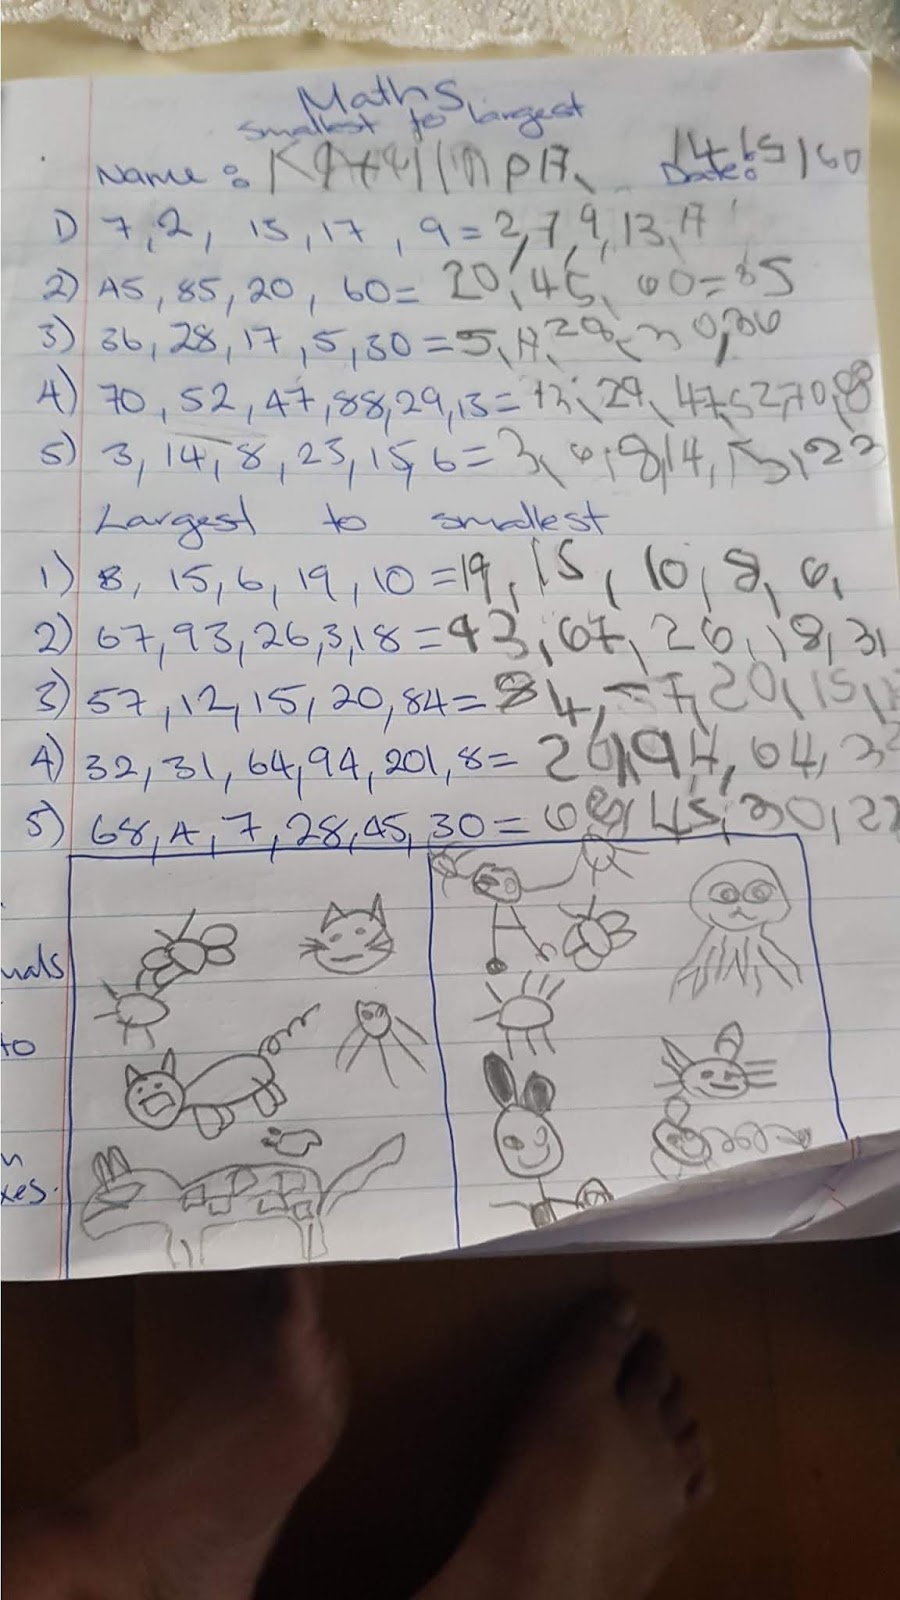 Maths
smallest to largest
Name: Date:
1) 7, 2, 13, 17, 9 = 2, 7, 9, 13, 17
2) 45, 85, 20, 60 = 20, 45, 60 = 85
3) 36, 28, 17, 5, 30 = 5, 17, 28, 30, 36
4) 70, 52, 47, 88, 29, 13 = 13, 29, 47, 52, 70, 88
5) 3, 14, 8, 23, 15, 6 = 3, 6, 8, 14, 15, 23
Largest to smallest
1) 8, 15, 6, 19, 10 = 19, 15, 10, 8, 6,
2) 67, 93, 26, 3, 18 = 93, 67, 26, 18, 3,
3) 57, 12, 15, 20, 84 = 84, 57, 20, 15,
4) 32, 31, 64, 94, 201, 8 = 201, 94, 64, 32
5) 68, 4, 7, 28, 45, 30 = 68, 45, 30,
to